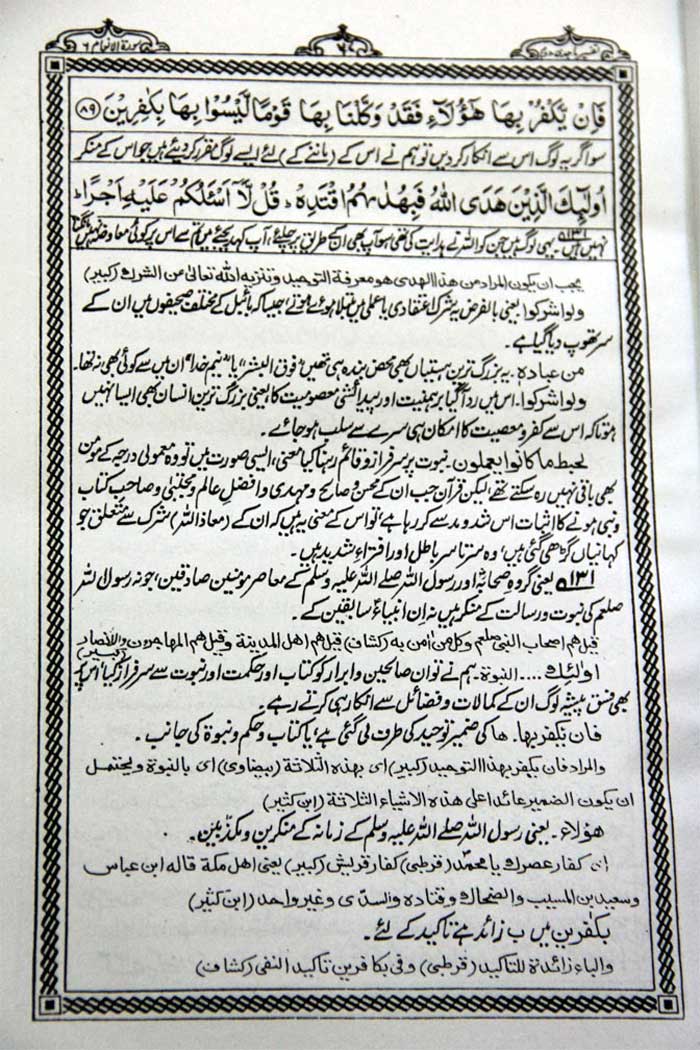 تفسیر ماجدی
۶۷
سورۃ الانعام ۶
فَاِنْ يَّكْفُرْ بِهَا هٰٓؤُلَآءِ فَقَدْ وَكَّلْنَا بِهَا قَوْمًا لَّيْسُوْا بِهَا بِكٰفِرِيْنَ ﴿۸۹﴾
سو اگر یہ لوگ اس سے انکار کردیں تو ہم نے اس کے (ماننے کے) لئے ایسے لوگ مقرر کردیئے ہیں جو اس کے منکر
اُولٰٓئِكَ الَّذِيْنَ هَدَى اللهُ فَبِهُدٰىهُمُ اقْتَدِهْ ؕ قُلْ لَّآ اَسْئَلُكُمْ عَلَيْهِ اَجْرًا ؕ
نہیں ہیں ۱۳۱ یہی لوگ ہیں جن کو اللہ نے ہدایت کی تھی سو آپ بھی ان کے طریق پر چلئے، آپ کہہ دیجئے میں تم سے اس پر کوئی معاوضہ نہیں مانگتا
يجب ان يكون المراد من هذا الهدى هو معرفة التوحيد وتنزيه الله تعالى من الشرك (كبير)
ولو اشركوا یعنی بالفرض یہ شرک اعتقادی یا عملی میں مبتلا ہوئے ہوتے، جیسا کہ بائبل کے مختلف صحیفوں میں ان کے
سر تھوپ دیا گیا ہے۔
من عباده۔ یہ بزرگ ترین ہستیاں بھی محض بندہ ہی تھیں "فوق البشر" یا "نیم خدا" ان میں سے کوئی بھی نہ تھا۔
ولو اشركوا۔ اس میں رد آگیا برہمنیت اور پیدائشی معصومیت کا یعنی بزرگ ترین انسان بھی ایسا نہیں
ہوتا کہ اس سے کفر و معصیت کا امکان ہی سرے سے سلب ہو جائے۔
لحبط ما كانوا يعملون۔ نبوت پر سرفراز و قائم رہنا کیا معنی، ایسی صورت میں تو وہ معمولی درجہ کے مومن
بھی باقی نہیں رہ سکتے تھے، لیکن قرآن جب ان کے محسن و صالح و مہدی و افضل عالم و مجتبیٰ و صاحب کتاب
و نبی ہونے کا اثبات اس شد و مد سے کر رہا ہے، تو اس کے معنی یہ ہیں کہ ان کے (معاذ اللہ) شرک سے متعلق جو
کہانیاں گڑھی گئی ہیں، وہ سرتاسر باطل اور افتراء شدید ہیں۔
۱۳۱ یعنی گروہ صحابہؓ اور رسول اللہ صلے اللہ علیہ وسلم کے معاصر مومنین صادقین، جو نہ رسول اللہ
صلعم کی نبوت و رسالت کے منکر ہیں نہ ان انبیاءِ سابقین کے۔
قيل هم اصحاب النبي صلعم وكل من اٰمن به (كشاف) قيل هم اهل المدينة وقيل هم المهاجرون والانصار (كبير)
اولٰئك .... النبوة۔ ہم نے تو ان صالحین و ابرار کو کتاب اور حکمت اور نبوت سے سرفراز کیا، اس پر
بھی فسق پیشہ لوگ ان کے کمالات و فضائل سے انکار ہی کرتے رہے۔
فان يكفر بها۔ ها کی ضمیر توحید کی طرف لی گئی ہے، یا کتاب و حکم و نبوۃ کی جانب۔
والمراد فان يكفر بهذا التوحيد (كبير) اى بهذه الثلاثة (بيضاوى) اى بالنبوة ويحتمل
ان يكون الضمير عائدا على هذه الاشياء الثلاثة (ابن كثير)
هؤلاء۔ یعنی رسول اللہ صلے اللہ علیہ وسلم کے زمانہ کے منکرین و مکذبین۔
اى كفار عصرك يا محمد (قرطبى) كفار قريش (كبير) يعنى اهل مكة قاله ابن عباس
وسعيد بن المسيب والضحاك وقتادة والسدى وغير واحد (ابن كثير)
بكٰفرين میں ب زائد ہے تاکید کے لئے۔
والباء زائدة للتاكيد (قرطبى) وفى بكافرين تاكيد النفى (كشاف)